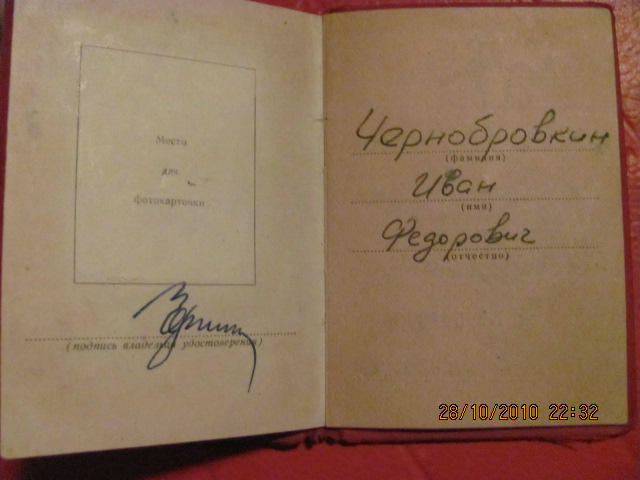 Место
для
фотокарточки
(подпись владельца удостоверения)
Чернобровкин
(фамилия)
Иван
(имя)
Федорович
(отчество)
28/10/2010 22:32